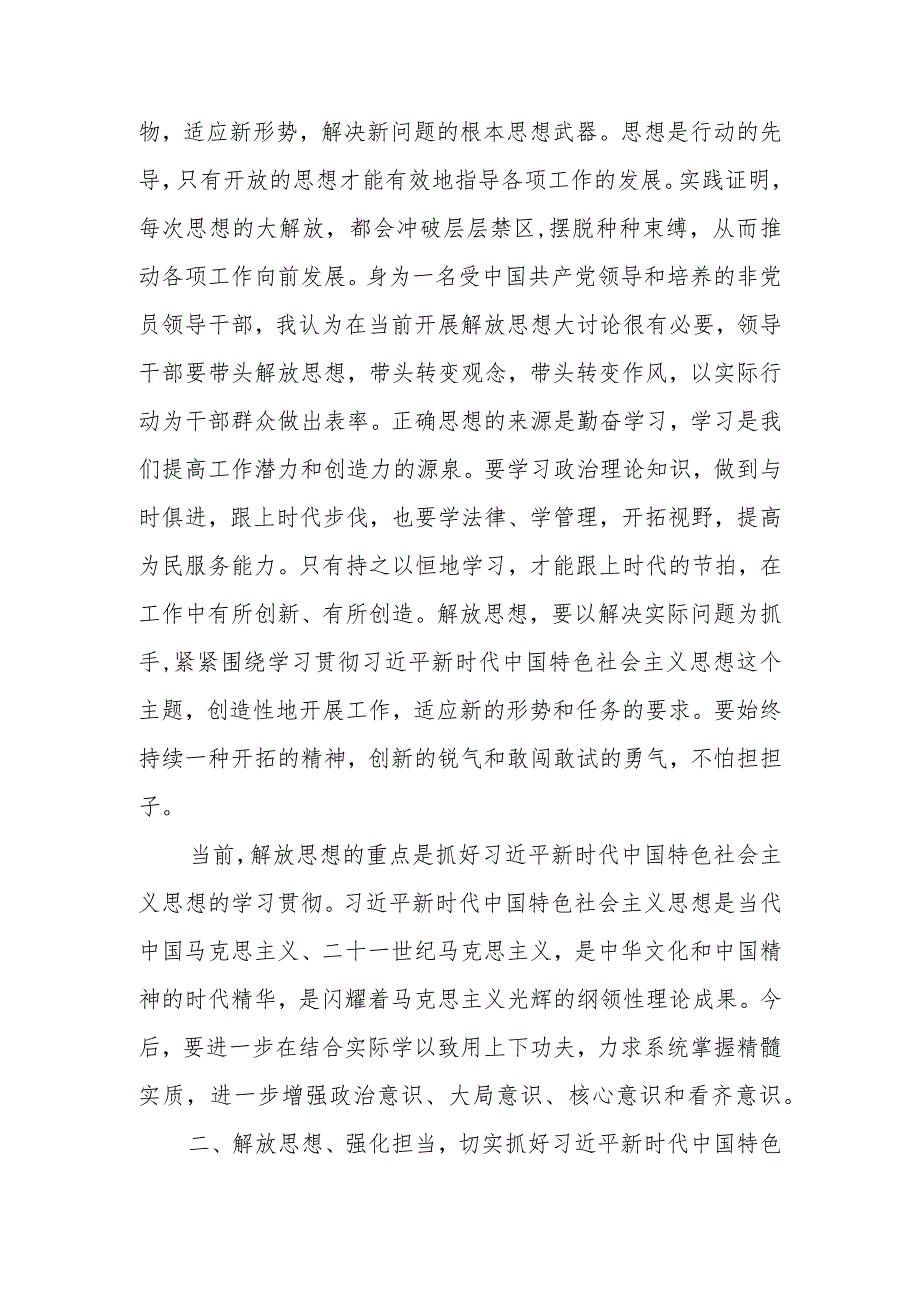 物，适应新形势，解决新问题的根本思想武器。思想是行动的先
导，只有开放的思想才能有效地指导各项工作的发展。实践证明，
每次思想的大解放，都会冲破层层禁区,摆脱种种束缚，从而推
动各项工作向前发展。身为一名受中国共产党领导和培养的非党
员领导干部，我认为在当前开展解放思想大讨论很有必要，领导
干部要带头解放思想，带头转变观念，带头转变作风，以实际行
动为干部群众做出表率。正确思想的来源是勤奋学习，学习是我
们提高工作潜力和创造力的源泉。要学习政治理论知识，做到与
时俱进，跟上时代步伐，也要学法律、学管理，开拓视野，提高
为民服务能力。只有持之以恒地学习，才能跟上时代的节拍，在
工作中有所创新、有所创造。解放思想，要以解决实际问题为抓
手,紧紧围绕学习贯彻习近平新时代中国特色社会主义思想这个
主题，创造性地开展工作，适应新的形势和任务的要求。要始终
持续一种开拓的精神，创新的锐气和敢闯敢试的勇气，不怕担担
子。
当前,解放思想的重点是抓好习近平新时代中国特色社会主
义思想的学习贯彻。习近平新时代中国特色社会主义思想是当代
中国马克思主义、二十一世纪马克思主义，是中华文化和中国精
神的时代精华，是闪耀着马克思主义光辉的纲领性理论成果。今
后，要进一步在结合实际学以致用上下功夫，力求系统掌握精髓
实质，进一步增强政治意识、大局意识、核心意识和看齐意识。
二、解放思想、强化担当，切实抓好习近平新时代中国特色